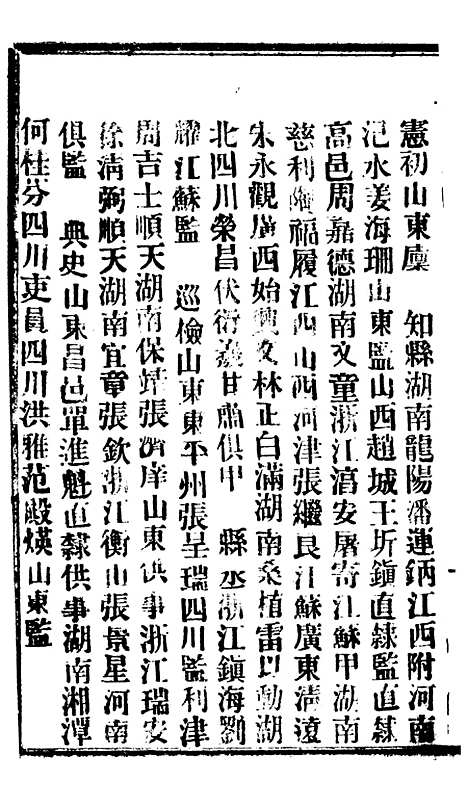 憲初山東廩 知縣湖南龍陽潘運鈵江西附河南
汜水姜海珊山東監山西趙城王圻鎭直隸監直隸
高邑周嘉德湖南文童浙江湻安屠寄江蘇甲湖南
慈利福履江西山西河津張繼良江蘇廣東淸遠
朱永觀廣西始興文林正白滿湖南桑植雷以動湖
北四川榮昌伏衍羲甘肅俱甲 縣丞浙江鎭海劉
耀江蘇監 巡檢山東東平州張呈瑞四川監利津
周吉士順天湖南保靖張濟庠山東供事浙江瑞安
徐淸弼順天湖南宜章張欽浙江衡山張景星河南
俱監 典史山東昌邑單進魁直隸供事湖南湘潭
何桂芬四川吏員四川洪雅范毓煐山東監